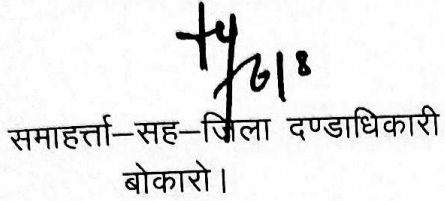 समाहर्त्ता–सह–जिला दण्डाधिकारी
बोकारो।